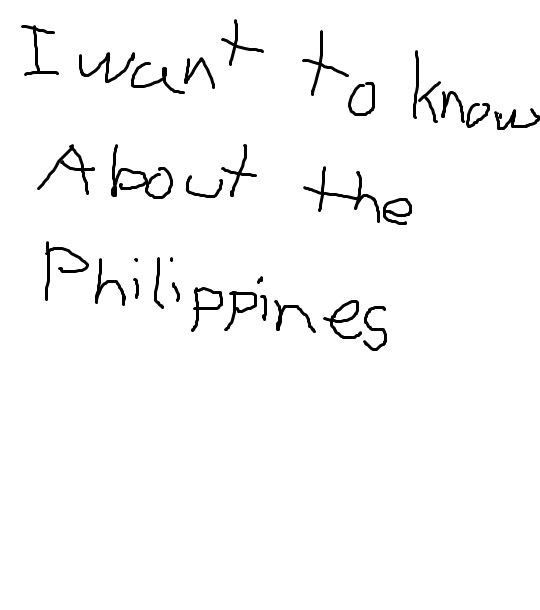 I want to know
About the
Philippines